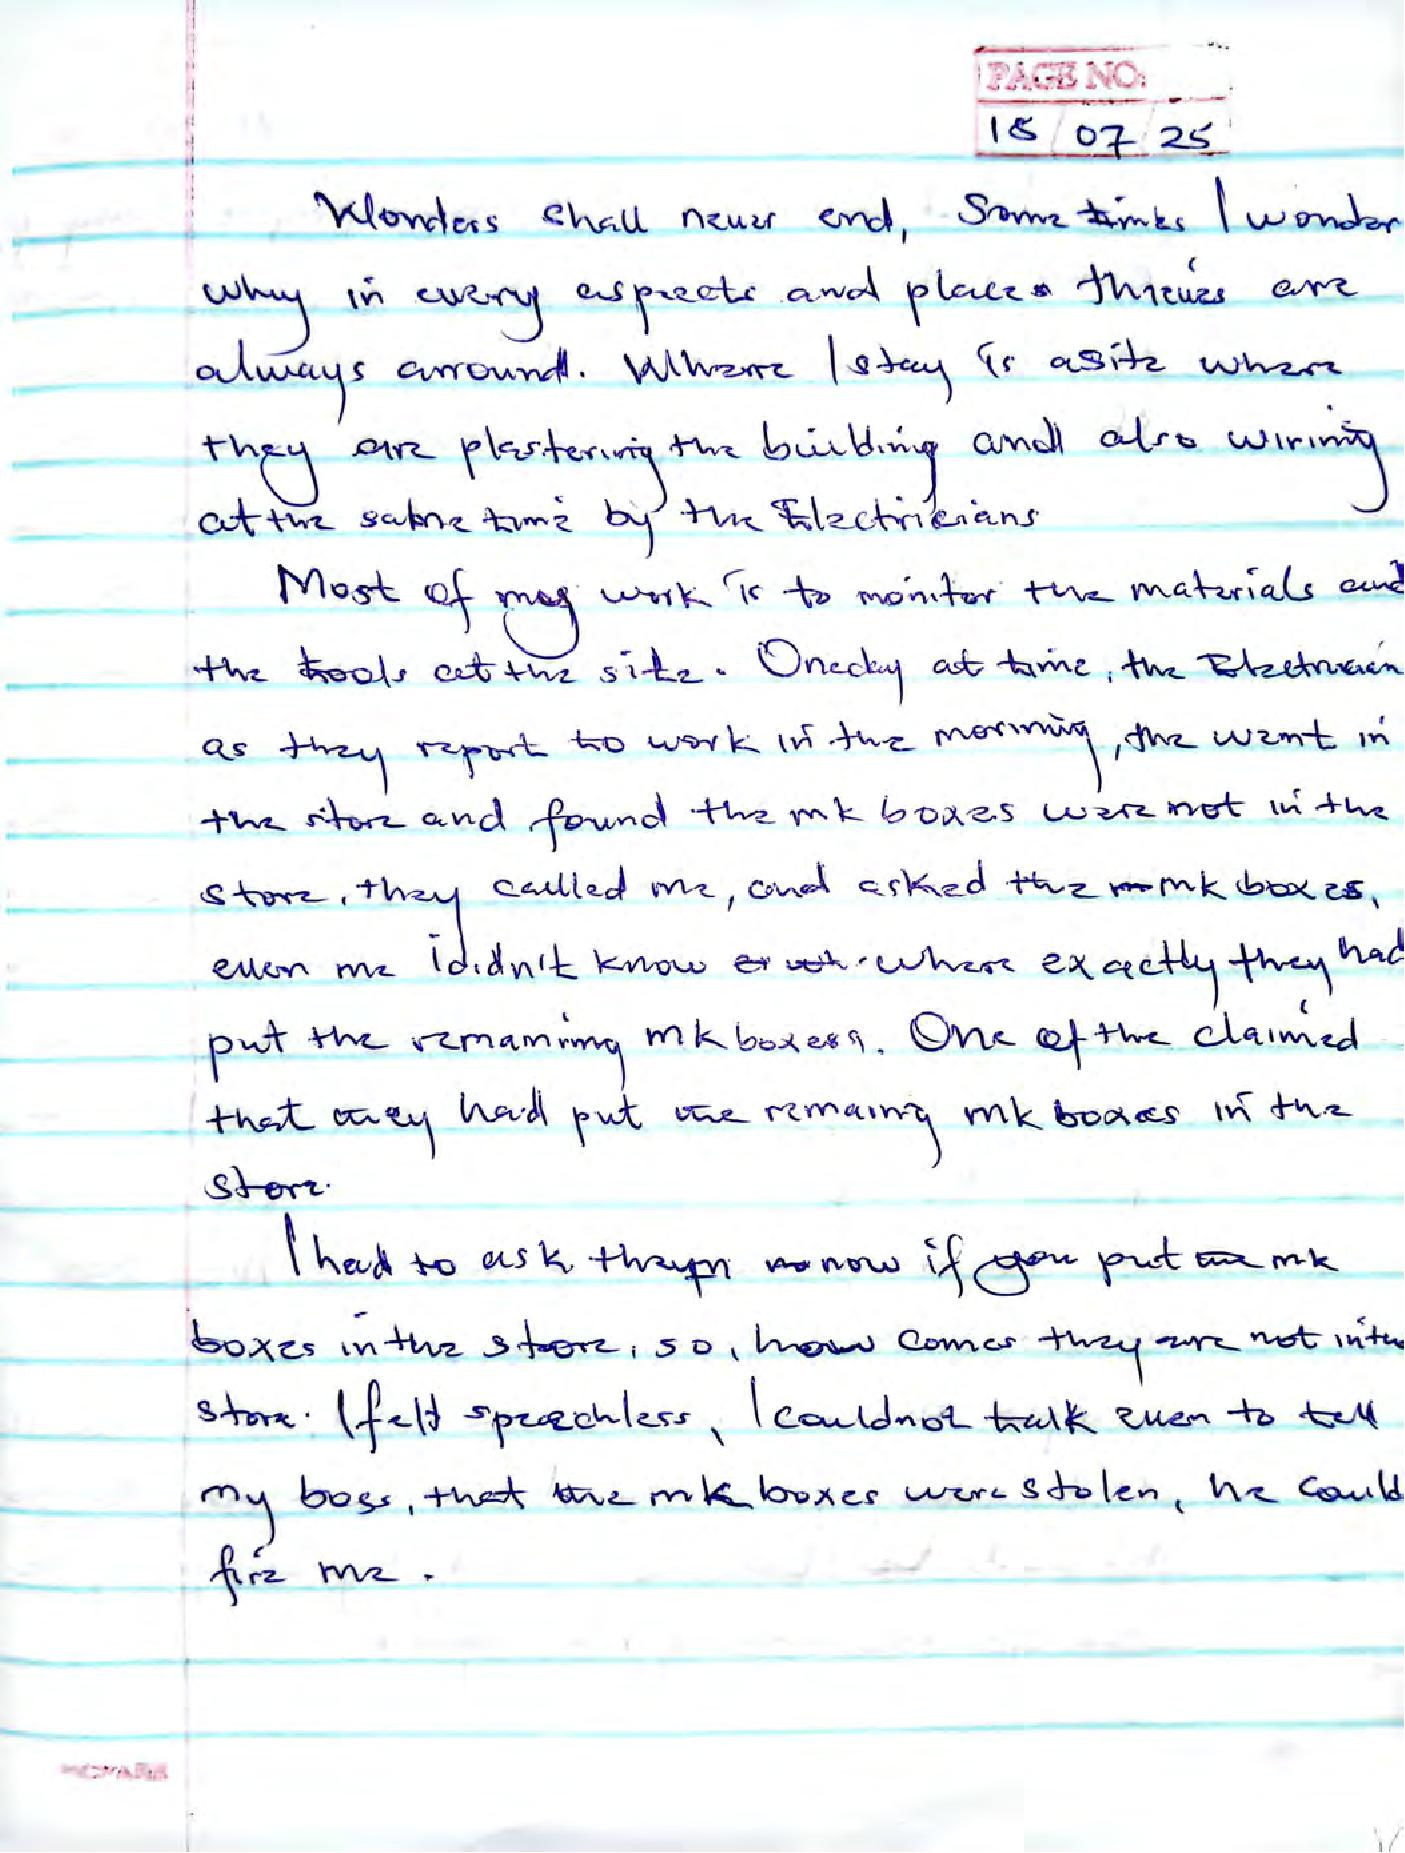 PAGE NO:
18 / 07 / 25
Wonders shall never end, Some times I wonder
why in every aspects and places thieves are
always arround. Where I stay is asite where
they are plastering the building and also wiring
at the same time by the Electricians
Most of my work is to monitor the materials and
the tools at the site. Oneday at time, the Electrician
as they report to work in the morning, the went in
the store and found the mk boxes were not in the
store, they called me, and asked the mk boxes,
even me ididn't know where exactly they had
put the remaining mk boxess. One of the claimed
that they had put the remaing mk boxes in the
store.
I had to ask them now if you put the mk
boxes in the store, so, how comes they are not in the
store. I felt speechless, I couldnot talk even to tell
my boss, that the mk boxes were stolen, he could
fire me.